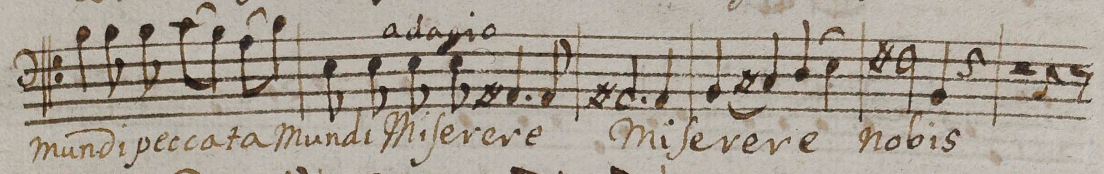 adagio
mundi peccata Mundi Miſerere Miſerere nobis